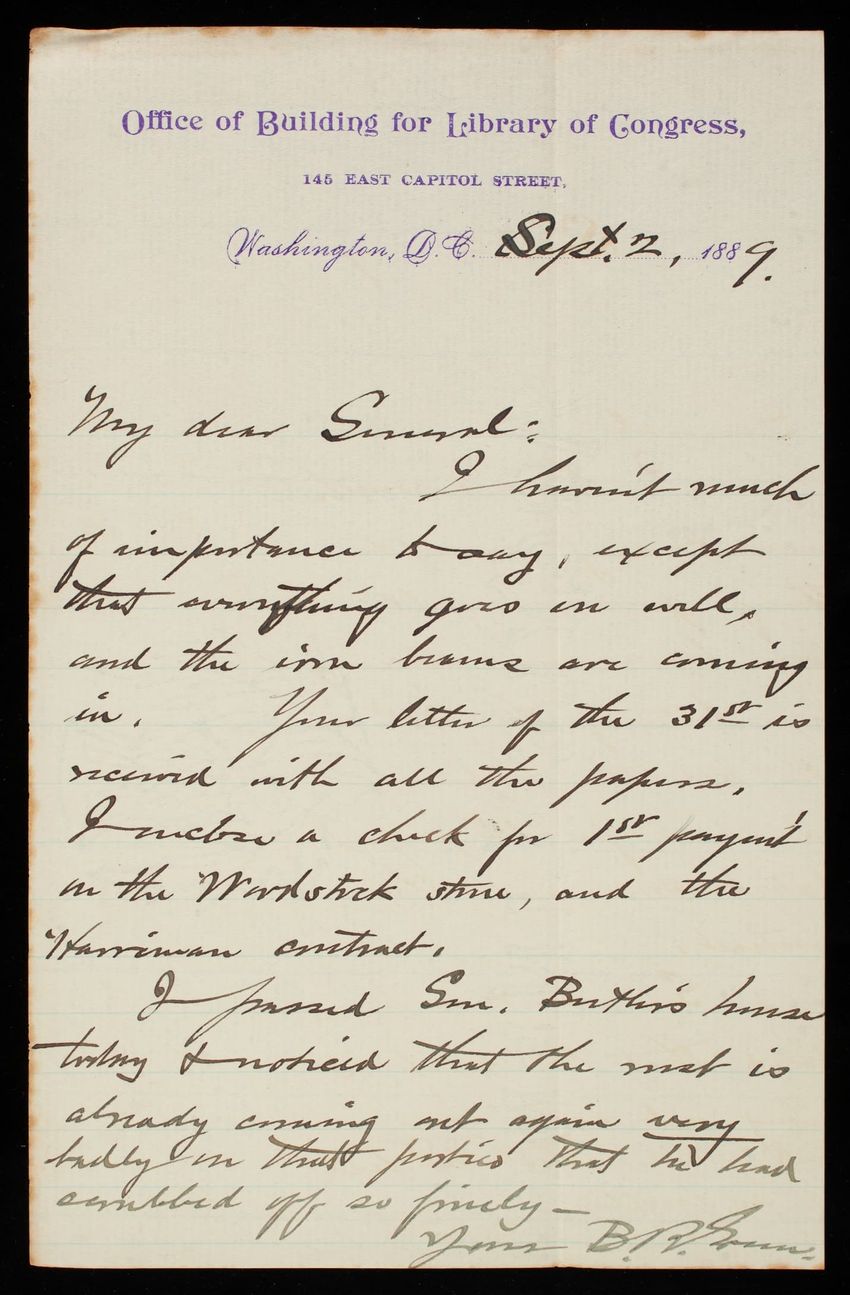 Office of Building for Library of Congress,
145 EAST CAPITOL STREET,
Washington, D.C. Sept. 2, 1889.
My dear General:
I haven't much
of importance to say, except
that everything goes on well,
and the iron beams are coming
in. Your letter of the 31st is
received with all the papers.
I enclose a check for 1st paym't
on the Woodstock stone, and the
Harriman contract.
I passed Gen. Butler's house
today & noticed that the rust is
already coming out again very
badly on that portico that he had
scrubbed off so finely—
Yours B.R. Green.